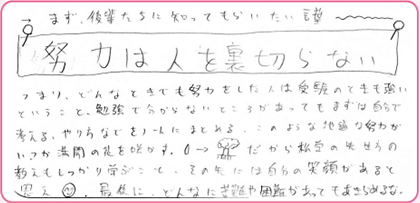 → まず、後輩たちに知ってもらいたい言葉
努力は人を裏切らない
つまり、どんなときでも努力をした人は受験のときも強い
ということ。勉強で分からないところがあってもまずは自分で
考える。やり方などをノートにまとめる。このような地道な努力が
いつか満開の花を咲かす。 → だから松高の先生方の
教えもしっかり学ぶこと。その先には自分の笑顔があると
思え 。最後に、どんなに苦難や困難があってもあきらめるな。